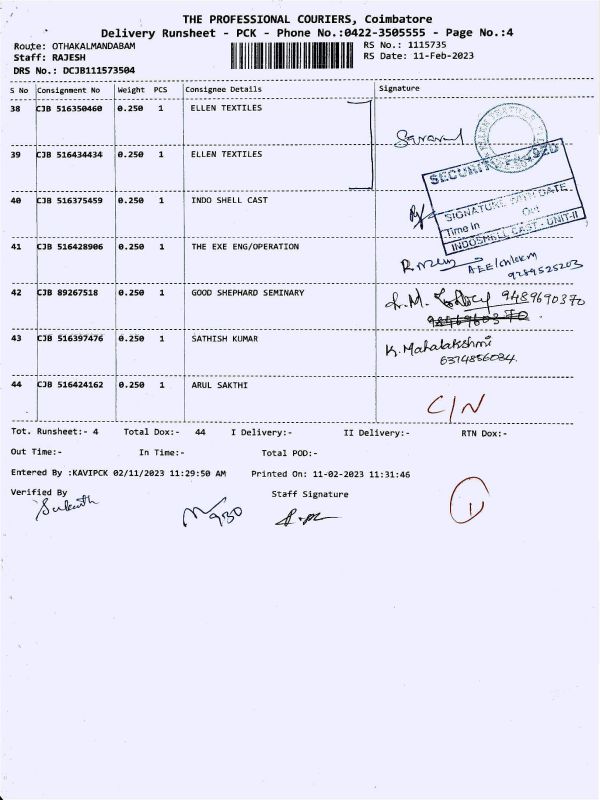 THE PROFESSIONAL COURIERS, Coimbatore
Delivery Runsheet - PCK - Phone No.:0422-3505555 - Page No.:4
Route: OTHAKALMANDABAM
RS No.: 1115735
Staff: RAJESH
RS Date: 11-Feb-2023
DRS No.: DCJB111573504
S No Consignment No Weight PCS Consignee Details Signature
38 CJB 516350460 0.250 1 ELLEN TEXTILES
39 CJB 516434434 0.250 1 ELLEN TEXTILES
SECURITY
40 CJB 516375459 0.250 1 INDO SHELL CAST
SIGNATURE WITH DATE
Time In Out
INDOSHELL CAST - UNIT-II
41 CJB 516428906 0.250 1 THE EXE ENG/OPERATION
9289525203
42 CJB 89267518 0.250 1 GOOD SHEPHARD SEMINARY
9489690370
43 CJB 516397476 0.250 1 SATHISH KUMAR K. Mahalakshmi
6374856084.
44 CJB 516424162 0.250 1 ARUL SAKTHI
C/N
Tot. Runsheet:- 4 Total Dox:- 44 I Delivery:- II Delivery:- RTN Dox:-
Out Time:- In Time:- Total POD:-
Entered By :KAVIPCK 02/11/2023 11:29:50 AM Printed On: 11-02-2023 11:31:46
Verified By Staff Signature
1